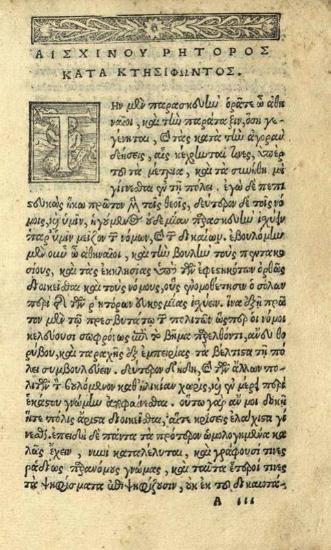 ΑΙΣΧΙΝΟΥ ΡΗΤΟΡΟΣ
ΚΑΤΑ ΚΤΗΣΙΦΩΝΤΟΣ.
Τὴν μὲν παρασκευὴν ὁρᾶτε ὦ ἀθη
ναῖοι, καὶ τὴν παράταξιν, ὅση γε
γένηται, καὶ τὰς κατὰ τὴν ἀγορὰν
δεήσεις, αἷς κέχρηνταί τινες, ὑπὲρ
τοῦ τὰ μέτρια, καὶ τὰ συνήθη μὴ
γίνεσθαι ἐν τῇ πόλει. ἐγὼ δὲ πεπι
στευκὼς ἥκω πρῶτον μὲν τοῖς θεοῖς, δεύτερον δὲ τοῖς νό
μοις, καὶ ὑμῖν, ἡγούμενος οὐδεμίαν παρασκευὴν ἰσχύειν
παρ' ὑμῖν μεῖζον τῶν νόμων, καὶ τῶν δικαίων. ἐβουλόμην
μὲν οὖν ὦ ἀθηναῖοι, καὶ τὴν βουλὴν τοὺς πεντακο
σίους, καὶ τὰς ἐκκλησίας ὑπὸ τῶν ἐφεστηκότων ὀρθῶς
διοικεῖσθαι, καὶ τοὺς νόμους, οὓς ἐνομοθέτησεν ὁ σόλων
περὶ τῆς τῶν ῥητόρων εὐκοσμίας ἰσχύειν. ἵνα ἐξῇ πρῶ
τον μὲν τῷ πρεσβυτάτῳ τῶν πολιτῶν, ὥσπερ οἱ νόμοι
κελεύουσι σωφρόνως ἐπὶ τὸ βῆμα παρελθόντι, ἄνευ θο
ρύβου, καὶ ταραχῆς ἐξ ἐμπειρίας τὰ βέλτιστα τῇ πό
λει συμβουλεύειν. δεύτερον δ' ἤδη, καὶ τῶν ἄλλων πο
λιτῶν τὸν βουλόμενον καθ' ἡλικίαν χωρὶς, καὶ ἐν μέρει περὶ
ἑκάστου γνώμην ἀποφαίνεσθαι. οὕτω γὰρ ἄν μοι δοκῇ
ἥ τε πόλις ἄριστα διοικεῖσθαι, αἵ τε κρίσεις ἐλάχισται γί
νεσθαι. ἐπειδὴ δὲ πάντα τὰ πρότερον ὡμολογημένα κα
λῶς ἔχειν, νυνὶ καταλέλυται, καὶ γράφουσί τινες
ῥᾳδίως παρανόμους γνώμας, καὶ ταῦτα ἕτεροί τινες
τὰ ψηφίσματα ἐπιψηφίζουσιν, οὐκ ἐκ τοῦ δικαιοτά-
A III